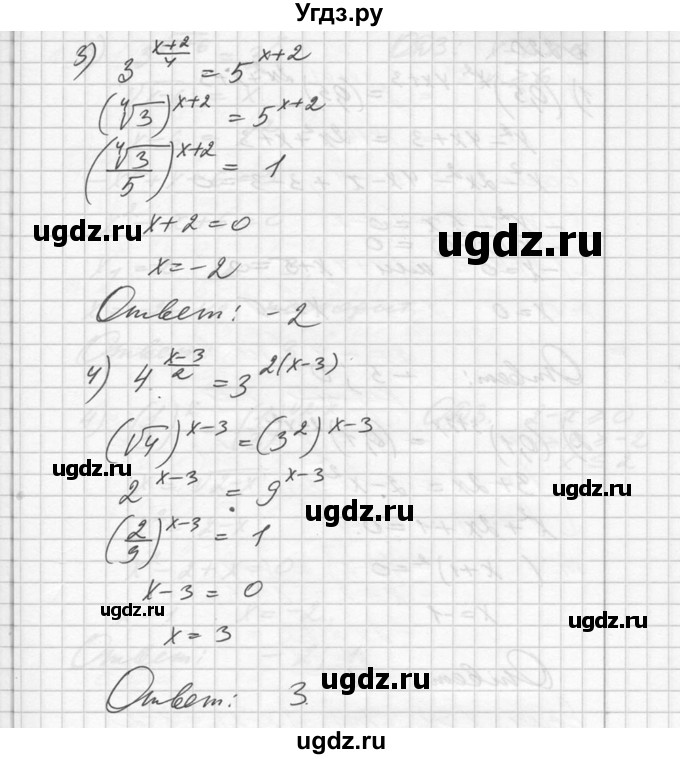 Угдз.ру
3) 3^((x+2)/4) = 5^(x+2)
(∜3)^(x+2) = 5^(x+2)
(∜3/5)^(x+2) = 1
x+2=0
ugdz.ru
ugdz.ru
x=-2
Ответ: -2
4) 4^((x-3)/2) = 3^(2(x-3))
ugdz.ru
(√4)^(x-3) = (3^2)^(x-3)
ugdz.ru
2^(x-3) = 9^(x-3)
ugdz.ru
ugdz.ru
(2/9)^(x-3) = 1
x-3 = 0
ugdz.ru
ugdz.ru
x = 3
Ответ: 3.
ugdz.ru
ugdz.ru